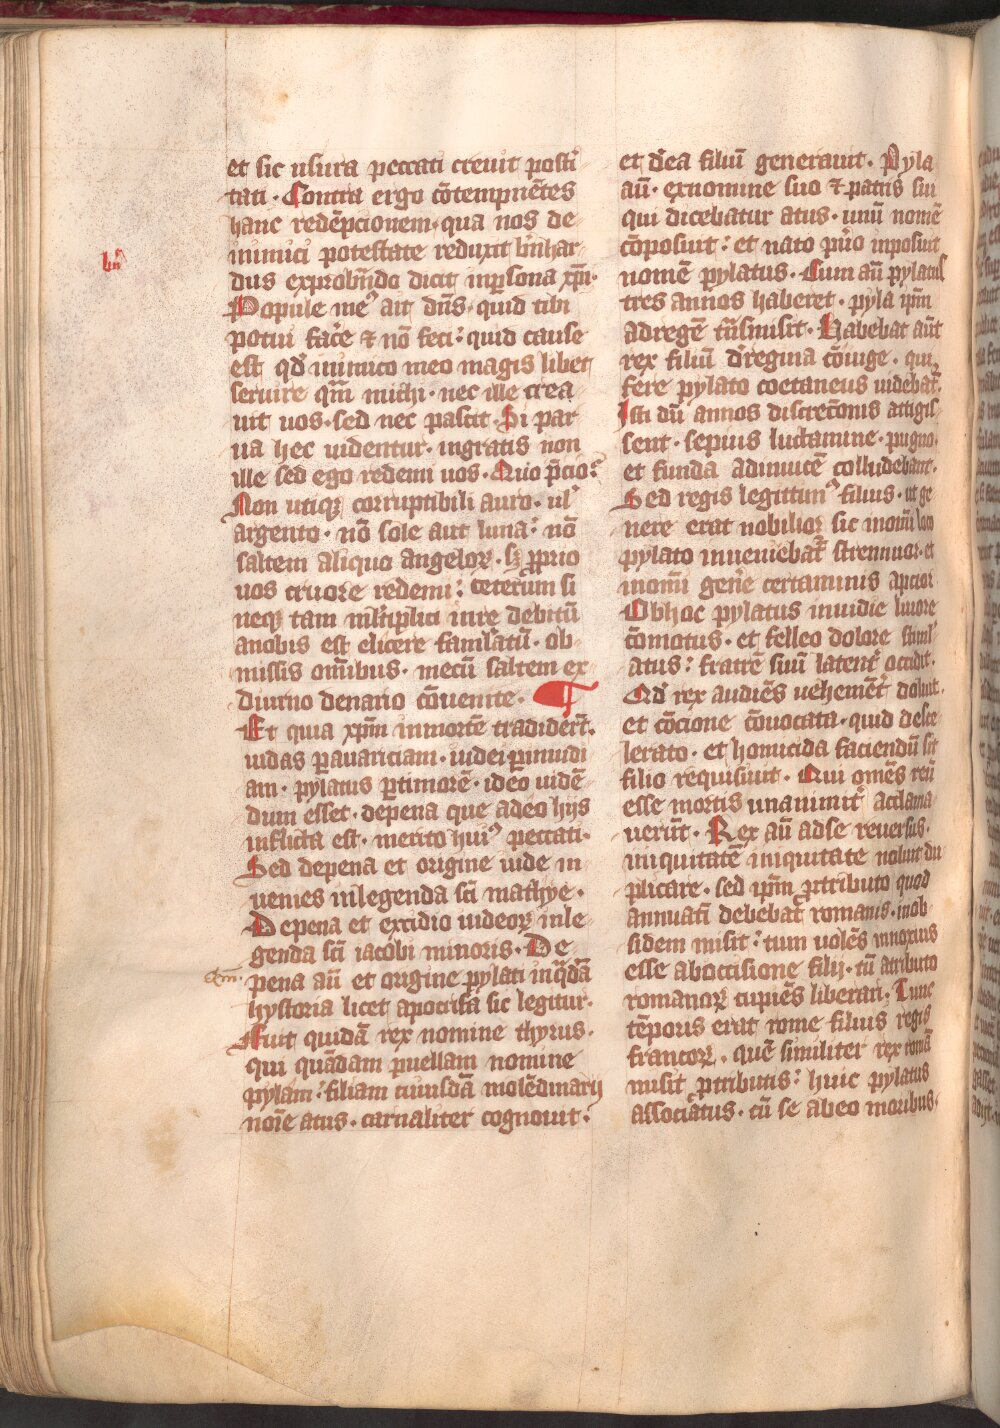 et sic usura peccati crevit posti
tati · Contra ergo cōtempnētes
hanc redēpcionem · qua nos de
inimici potestate reduxit b̄nhar
dus exprobrādo dicit inꝑsona xp̄i ·
Popule me᷒ ait dn̄s · quid tibi
potui fac̄e ⁊ nō feci : quid cause
est qd̄ inimico meo magis libet
servire qm̄ michi · nec ille crea
uit uos · sed nec pascit · Si par
ua hec uidentur · ingratis non
ille sed ego redemi uos · Quo p̄cio ?
Non utiqꝫ corruptibili auro · ul᷒
argento · nō sole aut luna : nō
saltem aliquo angeloꝝ · sꝫ ꝓprio
uos cruore redemi : ceterum si
necꝫ tam ml̄tiplici iure debitū
anobis est elicere famlatū · ob
missis om̄ibus · mecū saltem ex
diurno denario cōuenite · ¶
Et quia xp̄m inmortē tradider̄t ·
iudas ꝑauariciam · iudei ꝑinuidi
am · pylatus ꝑtimorē · ideo uidē
dum esset · depena que adeo hijs
inflicta est · merito hui᷒ peccati ·
Sed depena et origine iude in
uenies inlegenda sc̄i mathye ·
Depena et excidio iudeoꝝ inle
genda sc̄i iacobi minoris · De
pena aū et origine pylati inqdā
hystoria licet apocrifa sic legitur ·
Fuit quidā rex nomine thyrus ·
qui quādam puellam nomine
pylam : filiam cuiusdā molēdinarij
noīe atus · carnaliter cognouit :
et d̄ea filiū generauit · Pyla
aū · exnomine suo ⁊ patris sui
qui dicebatur atus · unū nomē
cōposuit : et nato pūo inposuit
nomē pylatus · Cum aū pylatus
tres annos haberet · pyla ip̄m
adregē tn̄smisit · Habebat aūt
rex filiū d̄regina cōiuge · qui
fere pylato coetaneus uidebat᷑ ·
Isti dū annos discrecōnis attigis
sent · sepius luctamine · pugno ·
et funda adinuicē colludebant ·
Sed regis legittim᷒ filius · ut ge
nere erat nobilioꝝ sic inom̄i loco
pylato inueniebat᷑ strennuor · et
inom̄i gen̄e certaminis apcior
Obhoc pylatus inuidie liuore
cōmotus · et felleo dolore
atus : fratrē suū latent᷑ occidit ·
Qd̄ rex audiēs uehemēt᷑ doluit ·
et cōcione cōuocata · quid desce
lerato · et homicida faciendū sit
filio requisiuit · Qui om̄es reū
esse mortis unanimit᷑ acclama
uerūt · Rex aū adse reuersus ·
iniquitatē iniquitate noluit du
plicare · sed ip̄m ꝓtributo quod
annuatī debebat᷑ romanis · inob
sidem misit : tum uolēs innoxius
esse aboccisione filij · tū atributo
romanoꝝ cupiēs liberari · Tunc
tēporis erat rome filius regis
francoꝝ · quē similiter rex romā
misit ꝓtributis : huic pylatus
associatus · cū se abeo moribus ·